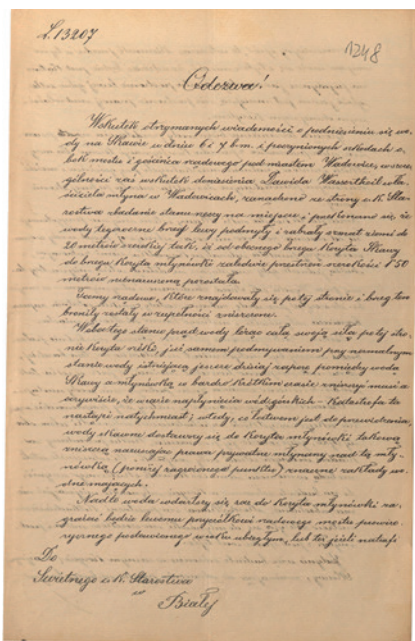 L. 13207
1248
Odezwa!
Wskutek otrzymanych wiadomości o podniesieniu się wo-
dy na Skawie w dniu 6 i 7 b.m. i poczynionych szkodach o-
bok mostu i gościńca rządowego pod miastem Wadowice, w szcze-
gólności zaś wskutek doniesienia Dawida Wassertheil wła-
ściciela młyna w Wadowicach, zarządzono ze strony c. k. Sta-
rostwa zbadanie stanu rzeczy na miejscu i przekonano się że
wody tegoroczne brzeg lewy podmyły i zabrały szmat ziemi do
20 metrów szerokiej tak, iż od obecnego brzegu koryta Skawy
do brzegu koryta młynówki zaledwie przestrzeń szerokości 1·50
metrów nienaruszoną pozostała.
Tamy rządowe, które znajdowały się po tej stronie i brzeg ten
broniły zostały w zupełności zniszczone.
Wobec tego stanu prąd wody bijąc całą swoją siłą po tej stro-
nie koryta rzeki, już samem podmywaniem przy normalnym
stanie wody istniejącą jeszcze dzisiaj zaporę pomiędzy wodą
Skawy a młynówką w bardzo krótkim czasie zniszczyć musi a
oczywiście, że w razie napłynięcia wód górskich - katastrofa ta
nastąpi natychmiast; wtedy, co łatwem jest do przewidzenia,
wody skawne dostawszy się do koryta młynówki takową
zniszczą naruszając prawa prywatne młynarzy nad tą mły-
nówką (poniżej zagrożonego punktu) znaczne zakłady wo-
dne mających.
Nadto woda wdarłszy się raz do koryta młynówki za-
grażać będzie lewemu przyczółkowi rządowego mostu
podawanego wieku ubiegłym, lub też jeżeli natrafi
Do
Świetnego c. k. Starostwa
w
Białej